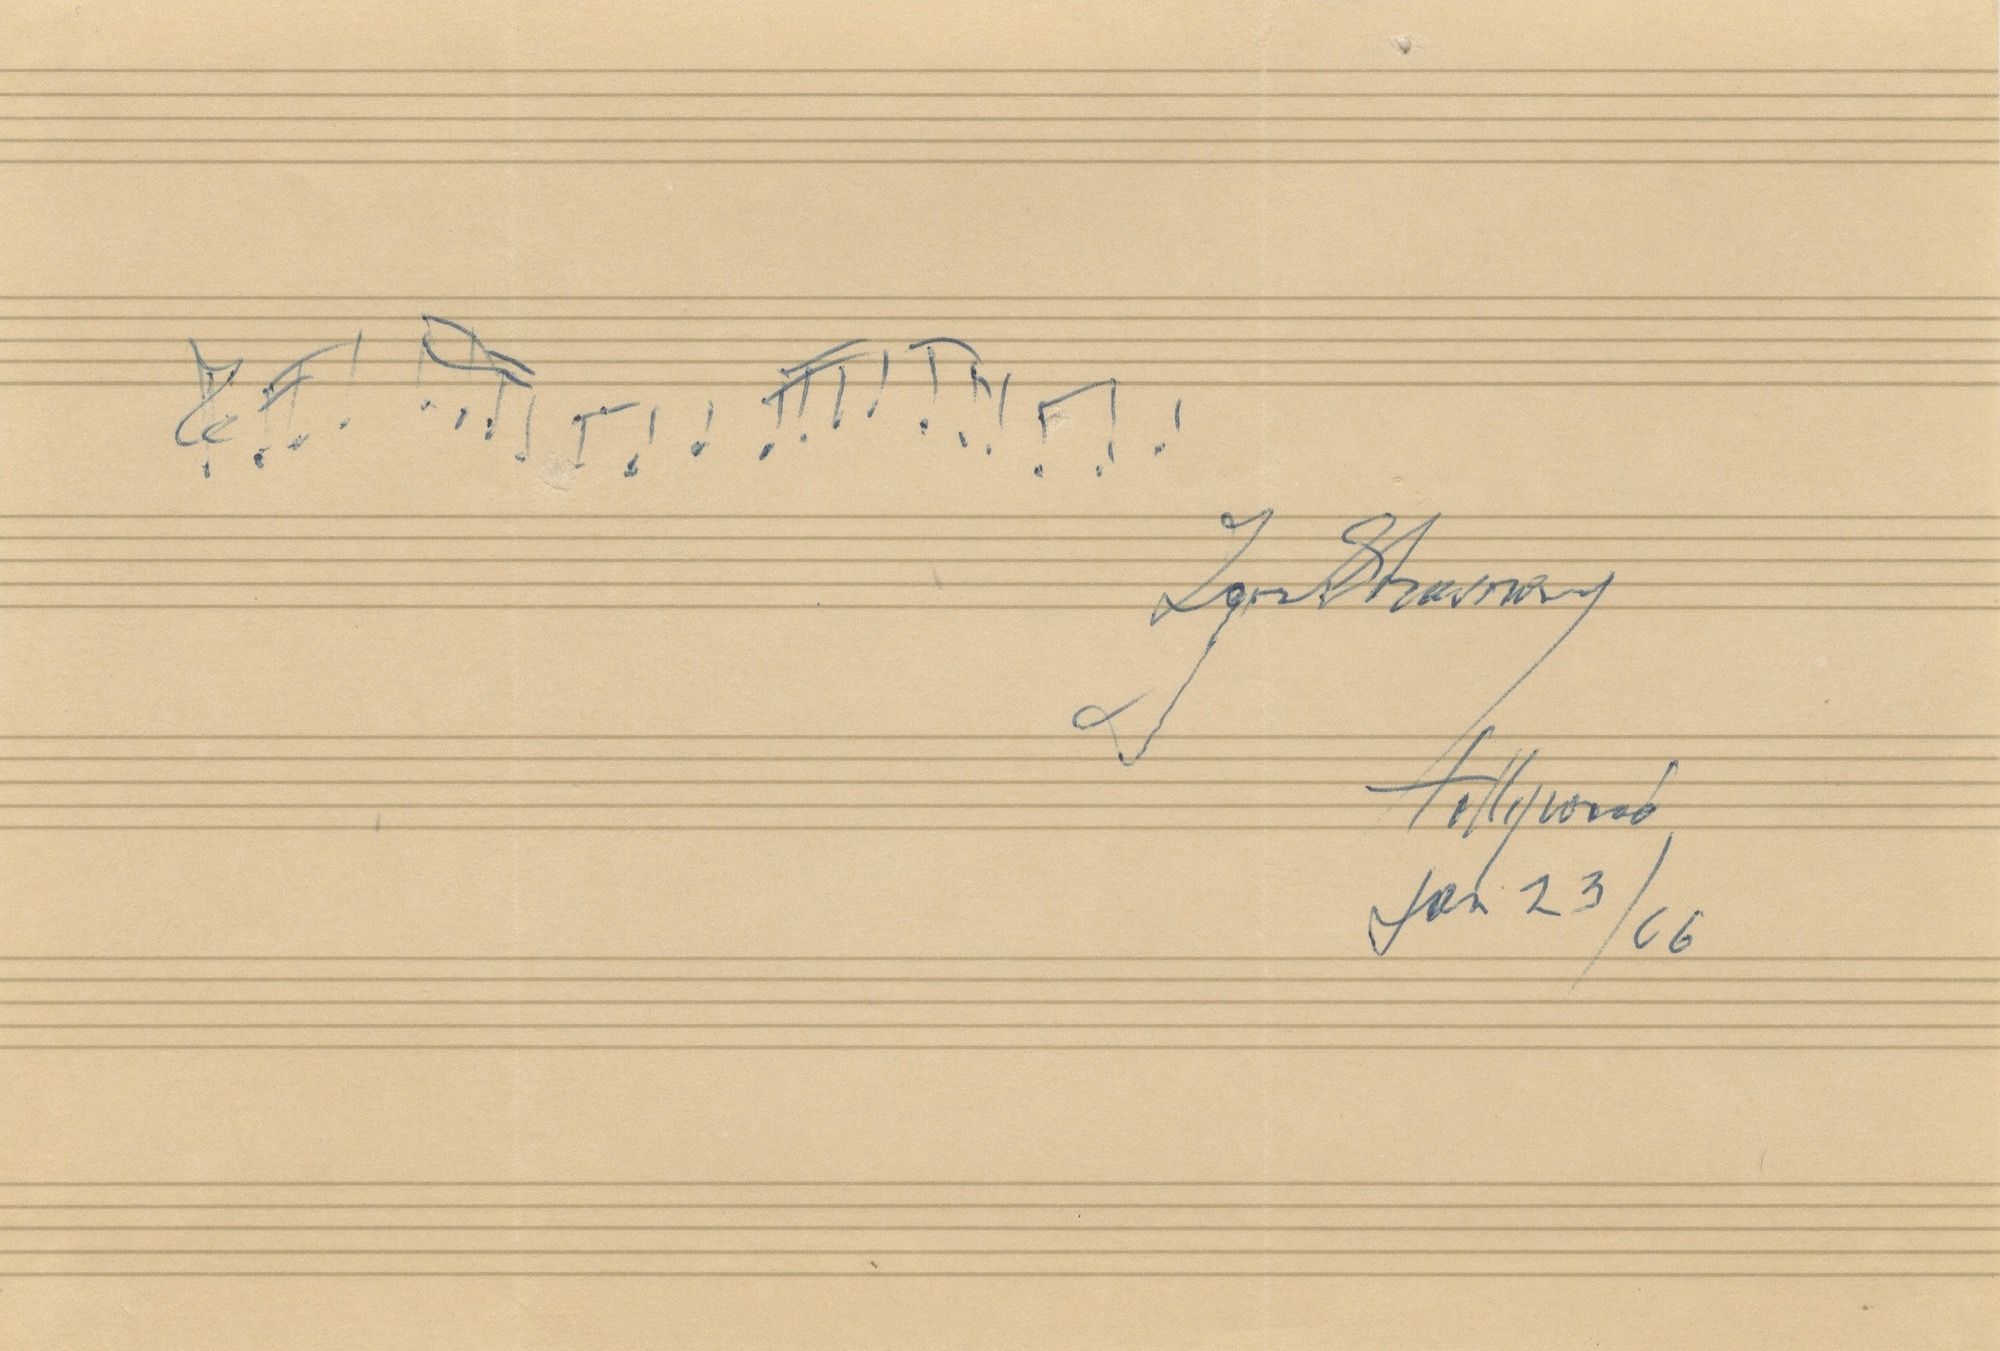 Igor Strawinsky
Hollywood
Jan 23/66